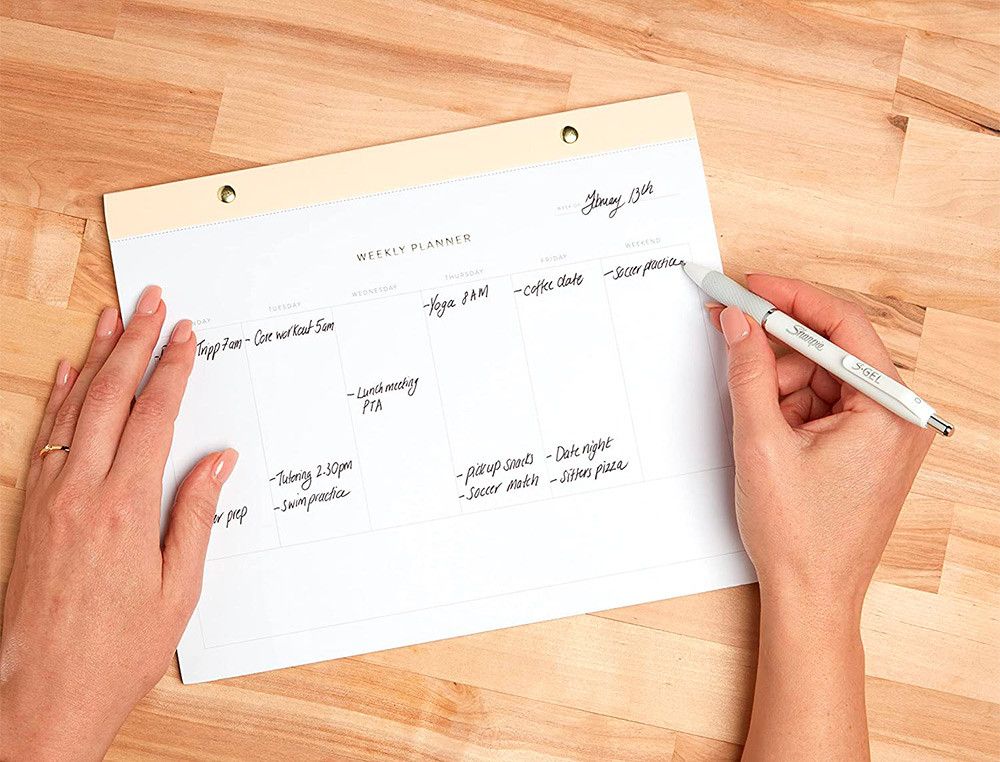 WEEK OF
February 13th
WEEKLY PLANNER
TUESDAY
WEDNESDAY
THURSDAY
FRIDAY
WEEKEND
Tripp 7am
- Core workout 5am
- Tutoring 2.30pm
- swim practice
- Lunch meeting
PTA
- Yoga 8AM
- pick up snacks
- Soccer match
- coffee date
- Date night
- Sitters pizza
- Soccer practice
prep
Sharpie
S·GEL